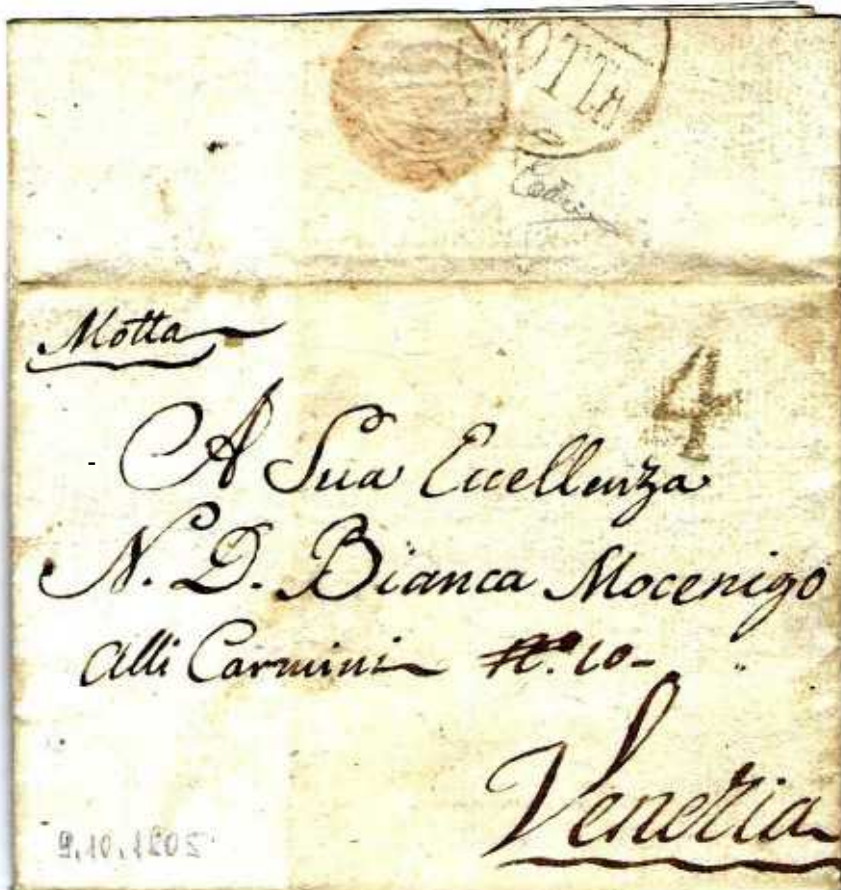 MOTTA
Motta
4
A Sua Eccellenza
N. D. Bianca Mocenigo
Alli Carmini N.º 10-
Venezia
9.10.1805